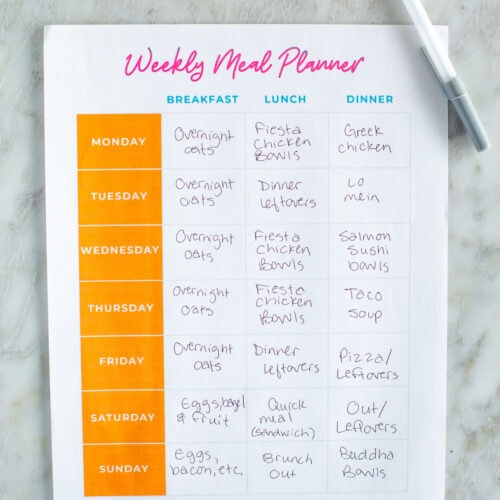 Weekly Meal Planner
BREAKFAST LUNCH DINNER
MONDAY
Overnight
oats
Fiesta
Chicken
Bowls
Greek
chicken
TUESDAY
Overnight
oats
Dinner
leftovers
Lo
mein
WEDNESDAY
Overnight
oats
Fiesta
Chicken
Bowls
Salmon
Sushi
bowls
THURSDAY
Overnight
oats
Fiesta
Chicken
Bowls
Taco
Soup
FRIDAY
Overnight
oats
Dinner
leftovers
Pizza/
Leftovers
SATURDAY
Eggs, bagel
& fruit
Quick
meal
(sandwich)
Out/
Leftovers
SUNDAY
eggs,
bacon, etc.
Brunch
out
Buddha
Bowls